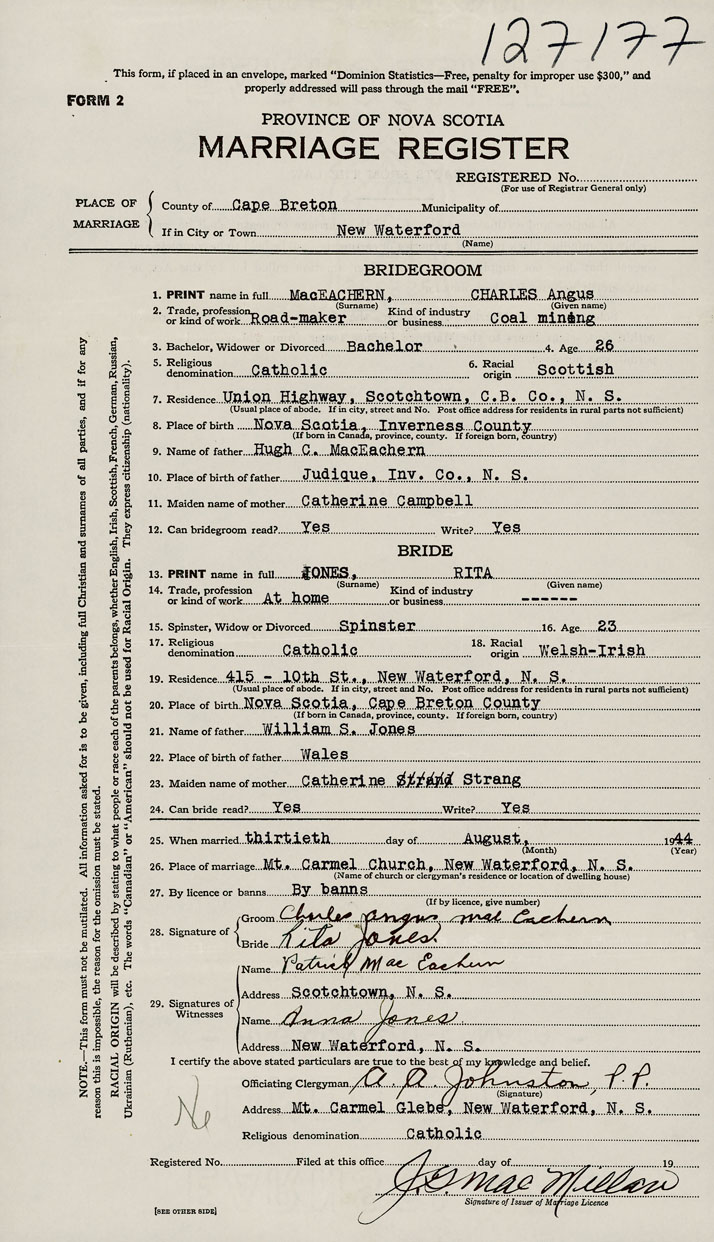 127177
This form, if placed in an envelope, marked "Dominion Statistics—Free, penalty for improper use $300," and
properly addressed will pass through the mail "FREE".
FORM 2
PROVINCE OF NOVA SCOTIA
MARRIAGE REGISTER
REGISTERED No.
(For use of Registrar General only)
PLACE OF MARRIAGE
County of Cape Breton Municipality of
If in City or Town New Waterford
(Name)
BRIDEGROOM
1. PRINT name in full MacEACHERN, CHARLES Angus
(Surname) (Given name)
2. Trade, profession or kind of work Road-maker Kind of industry or business Coal mining
3. Bachelor, Widower or Divorced Bachelor 4. Age 26
5. Religious denomination Catholic 6. Racial origin Scottish
7. Residence Union Highway, Scotchtown, C.B. Co., N. S.
(Usual place of abode. If in city, street and No. Post office address for residents in rural parts not sufficient)
8. Place of birth Nova Scotia, Inverness County
(If born in Canada, province, county. If foreign born, country)
9. Name of father Hugh C. MacEachern
10. Place of birth of father Judique, Inv. Co., N. S.
11. Maiden name of mother Catherine Campbell
12. Can bridegroom read? Yes Write? Yes
BRIDE
13. PRINT name in full JONES, RITA
(Surname) (Given name)
14. Trade, profession or kind of work At home Kind of industry or business ------
15. Spinster, Widow or Divorced Spinster 16. Age 23
17. Religious denomination Catholic 18. Racial origin Welsh-Irish
19. Residence 415 - 10th St., New Waterford, N. S.
(Usual place of abode. If in city, street and No. Post office address for residents in rural parts not sufficient)
20. Place of birth Nova Scotia, Cape Breton County
(If born in Canada, province, county. If foreign born, country)
21. Name of father William S. Jones
22. Place of birth of father Wales
23. Maiden name of mother Catherine Strang
24. Can bride read? Yes Write? Yes
25. When married thirtieth day of August, 1944
(Month) (Year)
26. Place of marriage Mt. Carmel Church, New Waterford, N. S.
(Name of church or clergyman's residence or location of dwelling house)
27. By licence or banns By banns
(If by licence, give number)
28. Signature of
Groom Charles Angus Mac Eachern
Bride Rita Jones.
29. Signatures of Witnesses
Name Patrick Mac Eachern
Address Scotchtown, N. S.
Name Anna Jones
Address New Waterford, N. S.
I certify the above stated particulars are true to the best of my knowledge and belief.
Officiating Clergyman A. A. Johnston, P.P.
(Signature)
Address Mt. Carmel Glebe, New Waterford, N. S.
Religious denomination Catholic
Registered No. Filed at this office day of 19
J. G. MacMillan
Signature of Issuer of Marriage Licence
[SEE OTHER SIDE]
NOTE.—This form must not be mutilated. All information asked for is to be given, including full Christian and surnames of all parties, and if for any
reason this is impossible, the reason for the omission must be stated.
RACIAL ORIGIN will be described by stating to what people or race each of the parents belongs, whether English, Irish, Scottish, French, German, Russian,
Ukrainian (Ruthenian), etc. The words "Canadian" or "American" should not be used for Racial Origin. They express citizenship (nationality).